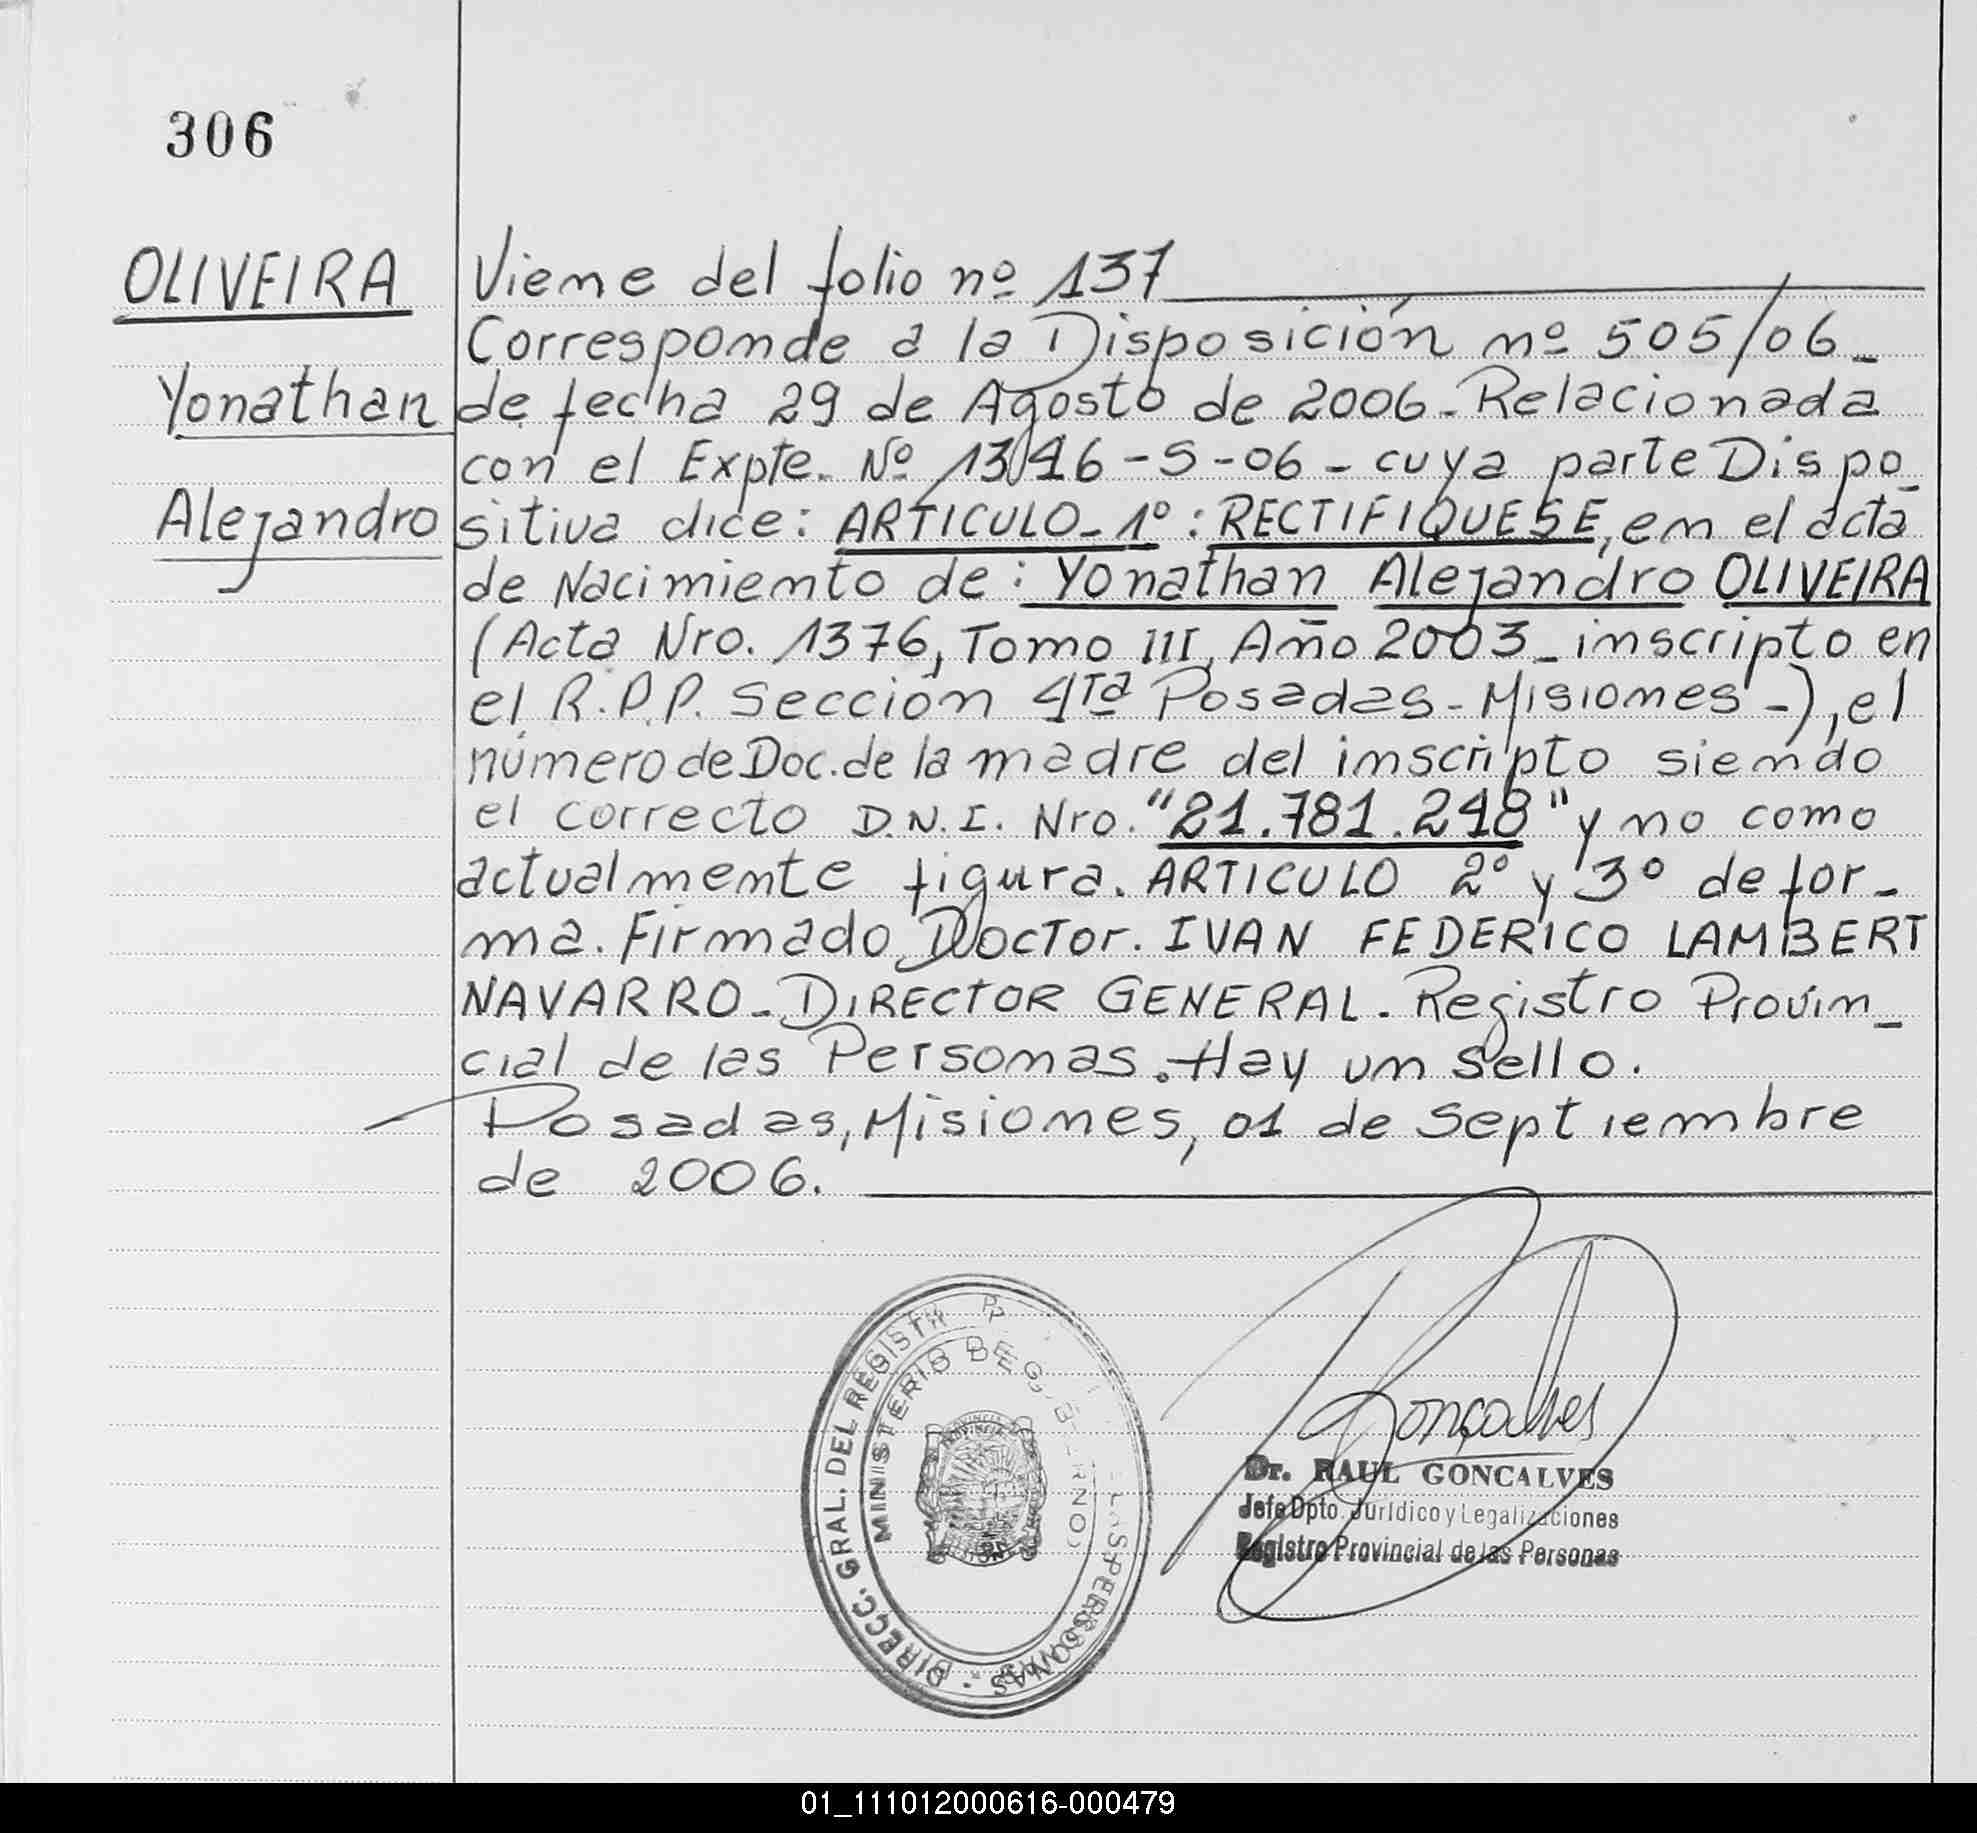 306
OLIVEIRA
Yonathan
Alejandro
Viene del folio nº 137
Corresponde a la Disposición nº 505/06_
de fecha 29 de Agosto de 2006_Relacionada
con el Expte. Nº 1346-S-06_cuya parte Dispo_
sitiva dice: ARTICULO_1º: RECTIFIQUESE, en el acta
de Nacimiento de: Yonathan Alejandro OLIVEIRA
(Acta Nro. 1376, Tomo III, Año 2003_inscripto en
el R.P.P. Sección 4ta Posadas-Misiones-), el
número de Doc. de la madre del inscripto siendo
el correcto D.N.I. Nro. "21.781.248" y no como
actualmente figura. ARTICULO 2º y 3º de for_
ma. Firmado Doctor. IVAN FEDERICO LAMBERT
NAVARRO_DIRECTOR GENERAL. Registro Provin_
cial de las Personas. Hay un sello.
Posadas, Misiones, 01 de Septiembre
de 2006.
DIRECC. GRAL. DEL REGISTR P LAS PERSONAS
MINISTERIO DE GOBIERNO
PROVINCIA
Gonçalves
Dr. RAUL GONCALVES
Jefe Dpto. Jurídico y Legalizaciones
Registro Provincial de las Personas
01_111012000616-000479